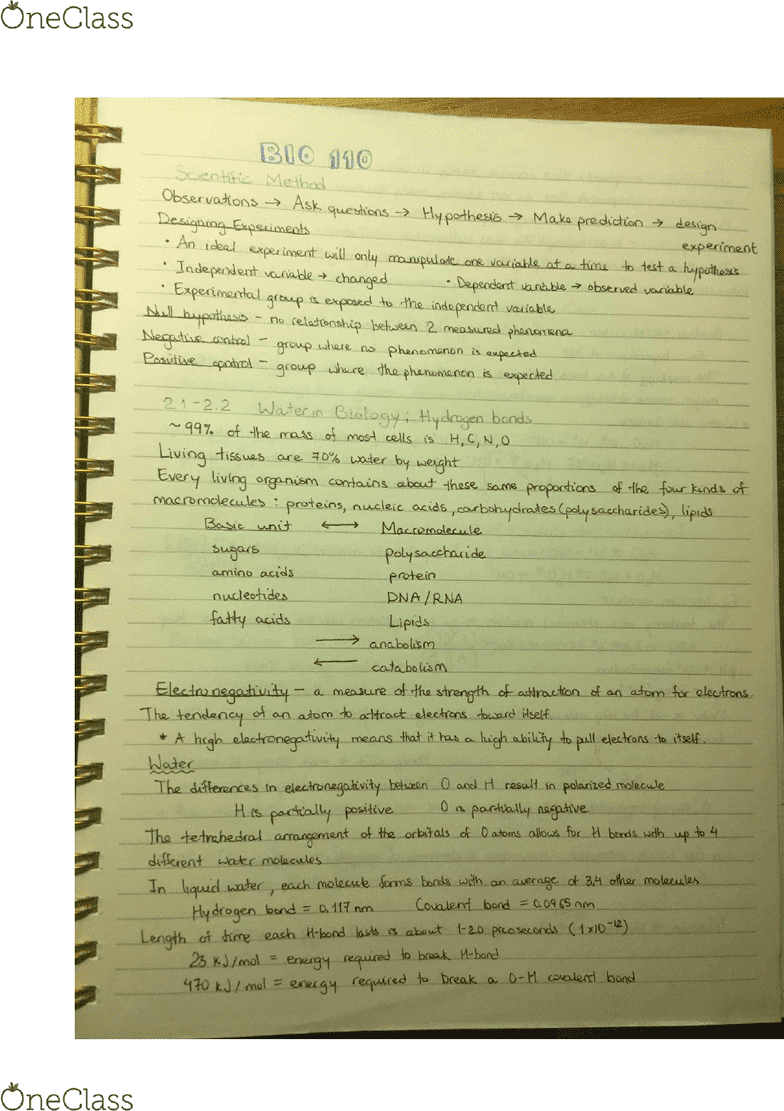 OneClass
BIO 110
Scientific Method
Observations → Ask questions → Hypothesis → Make prediction → design
experiment
Designing Experiments
• An ideal experiment will only manipulate one variable at a time to test a hypothesis
• Independent variable → changed • Dependent variable → observed variable
• Experimental group is exposed to the independent variable
Null hypothesis - no relationship between 2 measured phenomena
Negative control - group where no phenomenon is expected
Positive control - group where the phenomenon is expected
2.1-2.2 Water in Biology; Hydrogen bonds
~99% of the mass of most cells is H, C, N, O
Living tissues are 70% water by weight
Every living organism contains about these same proportions of the four kinds of
macromolecules: proteins, nucleic acids, carbohydrates (polysaccharides), lipids
Basic unit ↔ Macromolecule
sugars polysaccharide
amino acids protein
nucleotides DNA/RNA
fatty acids Lipids
→ anabolism
← catabolism
Electronegativity - a measure of the strength of attraction of an atom for electrons
The tendency of an atom to attract electrons toward itself
* A high electronegativity means that it has a high ability to pull electrons to itself.
Water
The differences in electronegativity between O and H result in polarized molecule
H is partially positive O is partially negative
The tetrahedral arrangement of the orbitals of O atoms allows for H bonds with up to 4
different water molecules
In liquid water, each molecule forms bonds with an average of 3.4 other molecules
Hydrogen bond = 0.117 nm Covalent bond = 0.0965 nm
Length of time each H-bond lasts is about 1-20 picoseconds (1×10⁻¹²)
23 kJ/mol = energy required to break H-bond
470 kJ/mol = energy required to break a O-H covalent bond
OneClass